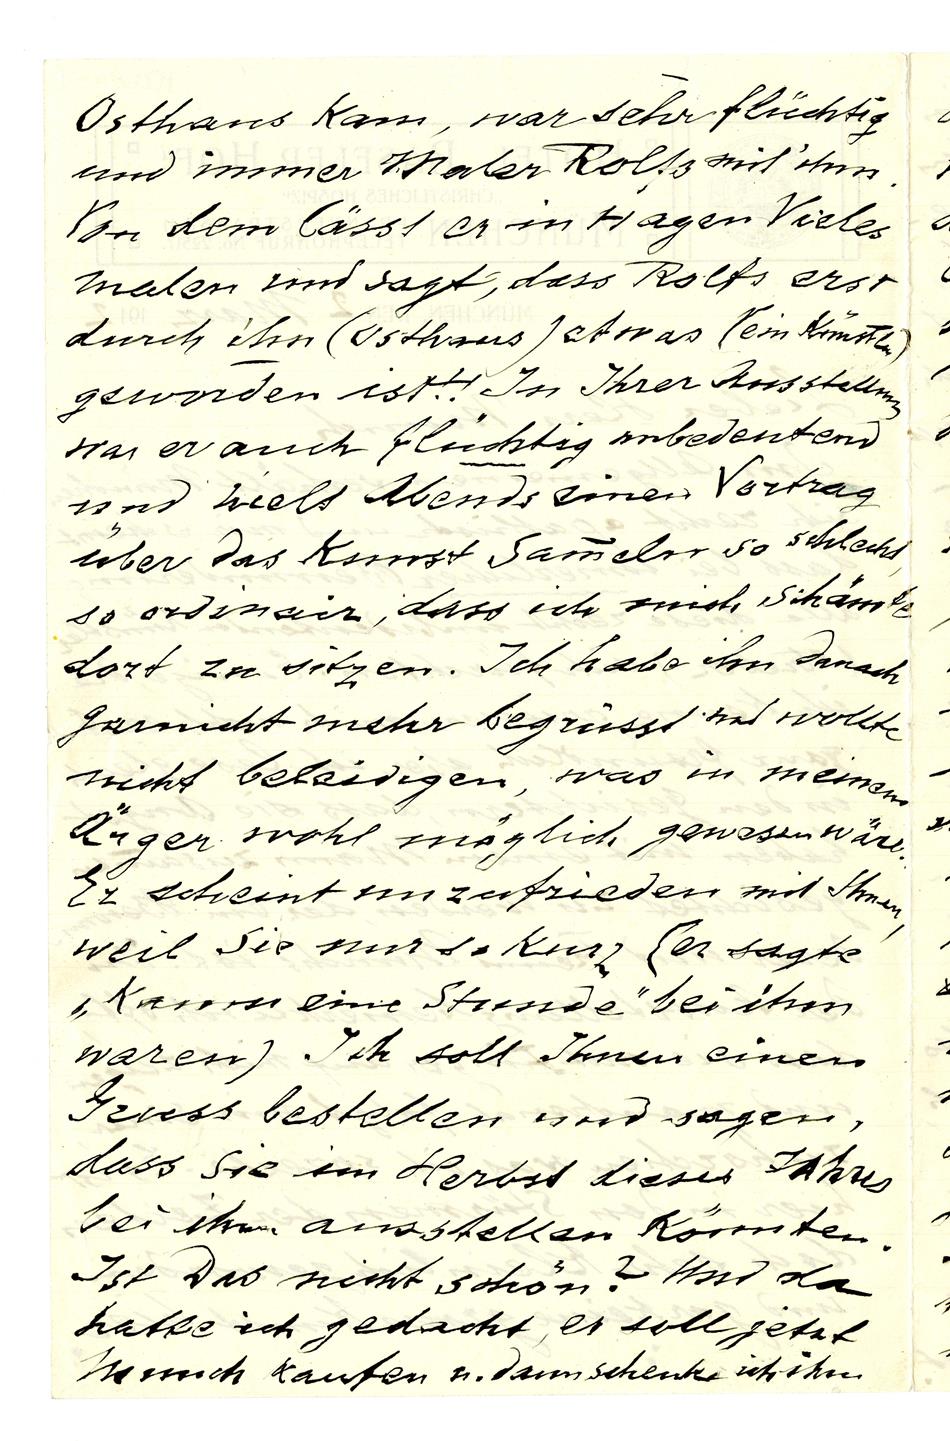 Osthaus kam, war sehr flüchtig
und immer Maler Rolfs mit ihm.
Von dem lässt er in Hagen Vieles
malen und sagt, dass Rolfs erst
durch ihn (Osthaus) etwas (ein Künstler)
geworden ist!! In Ihrer Ausstellung
war er auch flüchtig unbedeutend
und hielt Abends einen Vortrag
über das Kunst Sam̄eln so schlecht,
so ordinair, dass ich mich schämte
dort zu sitzen. Ich habe ihn danach
garnicht mehr begrüsst und wollte
nicht beleidigen, was in meinem
Ärger wohl möglich gewesen wäre.
Er scheint unzufrieden mit Ihnen,
weil Sie nur so kurz (er sagte
„Kaum eine Stunde" bei ihm
waren) Ich soll Ihnen einen
Gruss bestellen und sagen,
dass Sie im Herbst dieses Jahres
bei ihm ausstellen könnten.
Ist Das nicht schön? Und da
hatte ich gedacht, er soll jetzt
Munch kaufen u. dann schenke ich ihm